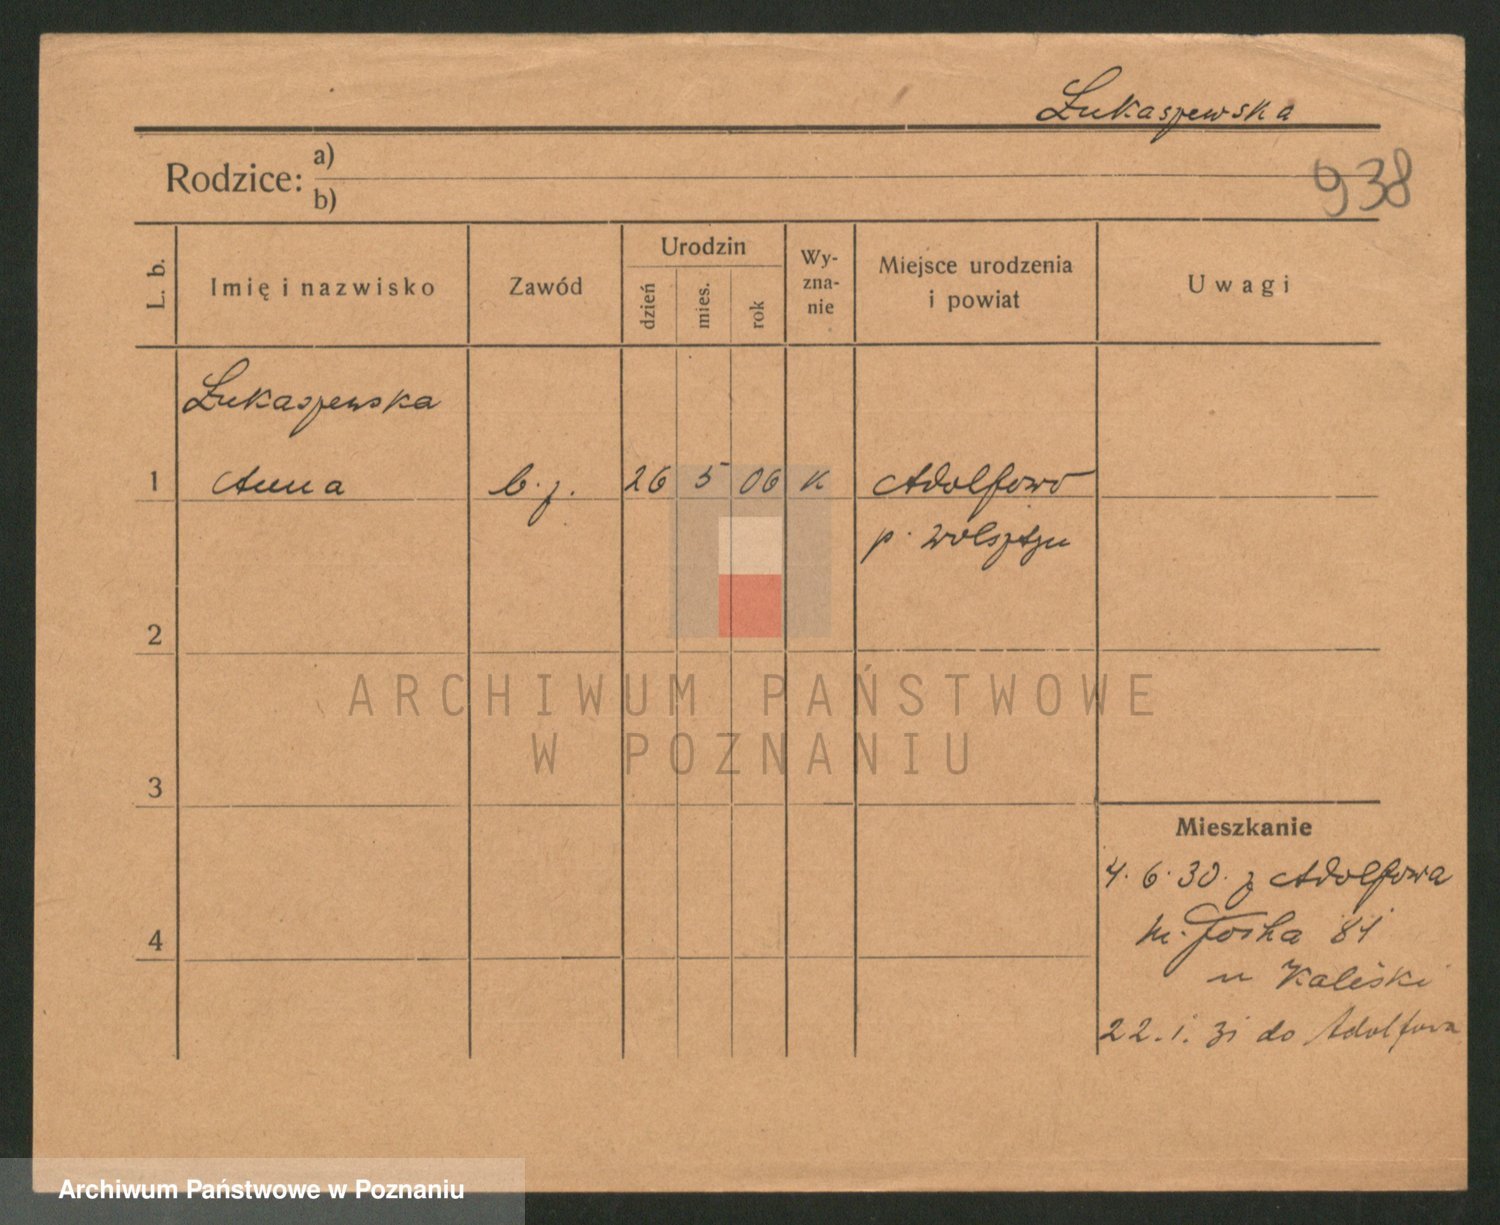 Łukaszewska
938
Rodzice: a)
b)
L. b.
Imię i nazwisko
Zawód
Urodzin
dzień
mies.
rok
Wy-
zna-
nie
Miejsce urodzenia
i powiat
Uwagi
Łukaszewska
1 Anna b. z. 26 5 06 K Adolfowo
p. Wolsztyn
2
ARCHIWUM PAŃSTWOWE
W POZNANIU
3
Mieszkanie
4. 6. 30. z Adolfowa
M. Focha 81
u Kaliski
4
22. 1. 31 do Adolfowa
Archiwum Państwowe w Poznaniu